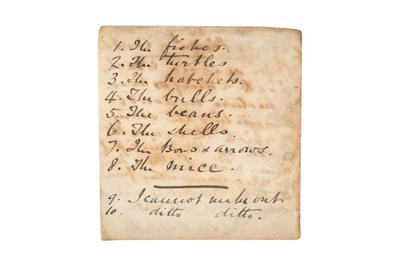 1. The fishes.
2. The turtles
3. The hatchets.
4. The bulls.
5. The beans.
6. The shells.
7. The Bows & arrows.
8. The mice.
9. I cannot make out
10. ditto ditto.